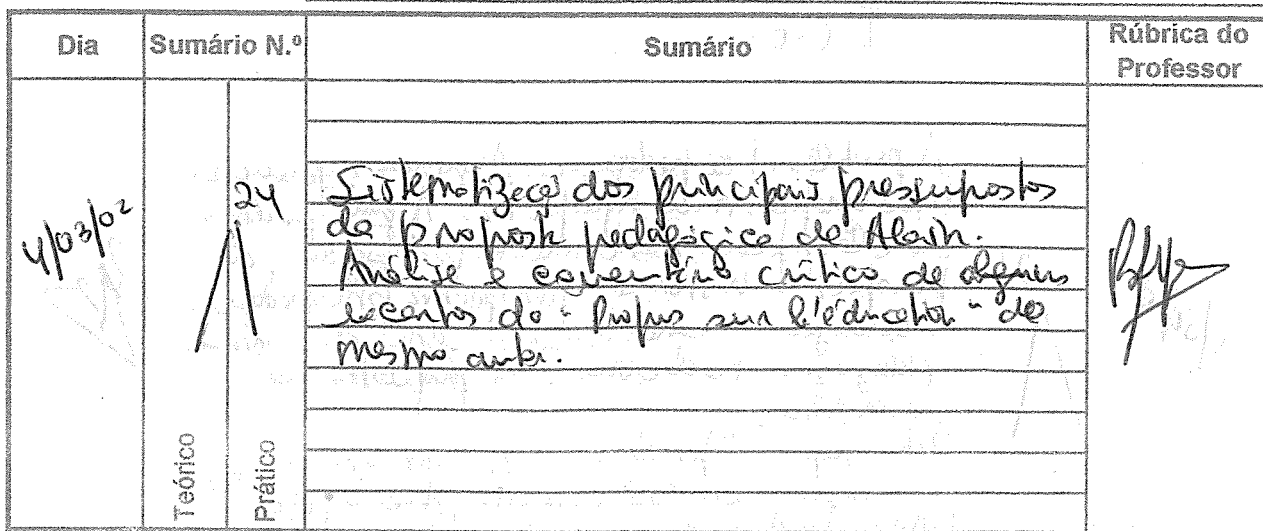 Dia Sumário N.º Sumário Rúbrica do Professor
4/03/02 24 Sistematização dos principais pressupostos
da proposta pedagógica de Alain.
Análise e comentário crítico de alguns
excertos do "Propos sur l'éducation" do
mesmo autor.
Teórico Prático